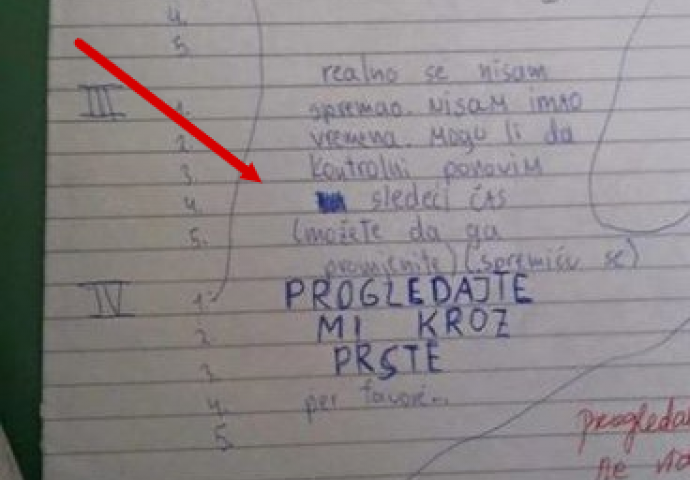 4.
5.
realno se nisam
III 1. spremao. Nisam imao
2. vremena. Mogu li da
3. kontrolni ponovim
4. sledeći ČAS
5. (možete da ga
promienite) (spremiću se)
IV 1. PROGLEDAJTE
2. MI KROZ
3. PRSTE
4. per favore..
5.
progleda
ne